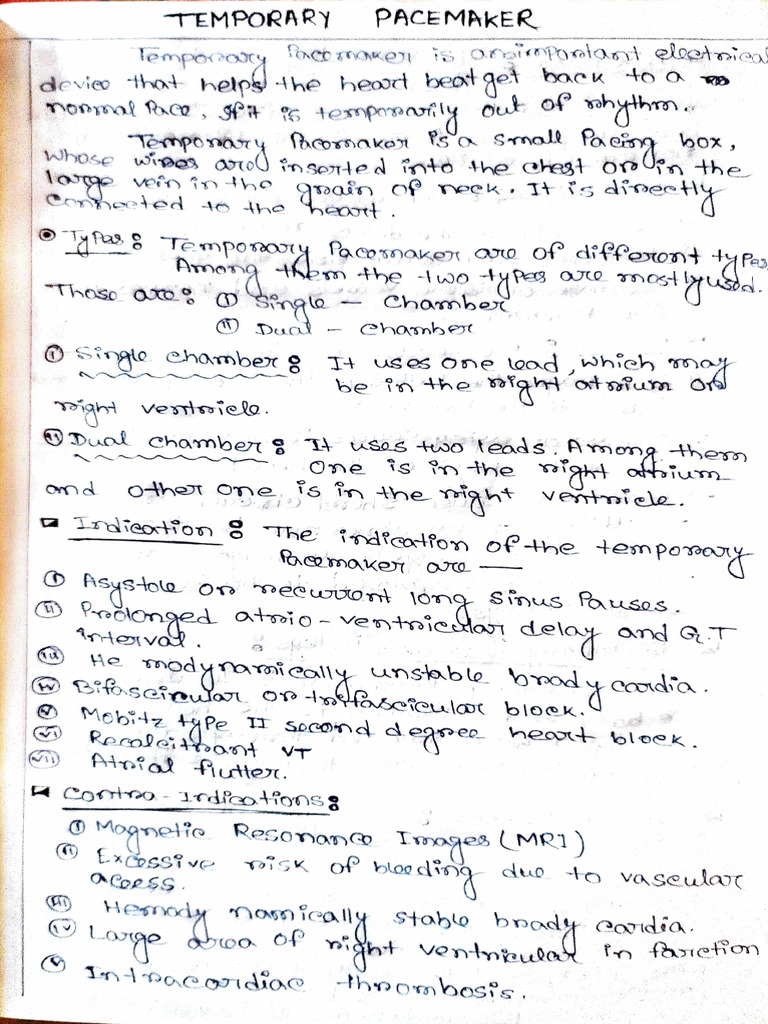 TEMPORARY PACEMAKER
Temporary Pacemaker is an important electrical
device that helps the heart beat get back to a
normal Pace, If it is temporarily out of rhythm.
Temporary Pacemaker is a small Pacing box,
whose wires are inserted into the chest or in the
large vein in the groin of neck. It is directly
connected to the heart.
Types: Temporary Pacemaker are of different types
Among them the two types are mostly used.
Those are: (i) Single - Chamber
(ii) Dual - Chamber
(i) Single chamber: It uses one lead, which may
be in the right atrium or
right ventricle.
(ii) Dual chamber: It uses two leads. Among them
One is in the right atrium
and other one is in the right ventricle.
Indication: The indication of the temporary
Pacemaker are —
(i) Asystole or recurrent long sinus Pauses.
(ii) Prolonged atrio-ventricular delay and Q.T
interval.
(iii) He modynamically unstable brady cardia.
(iv) Bifascicular or trifascicular block.
(v) Mobitz type II second degree heart block.
(vi) Recalcitrant VT
(vii) Atrial flutter.
Contra-Indications:
(i) Magnetic Resonance Images (MRI)
(ii) Excessive risk of bleeding due to vascular
access.
(iii) Hemody namically stable brady cardia.
(iv) Large area of right ventricular in farction
(v) Intracardiac thrombosis.